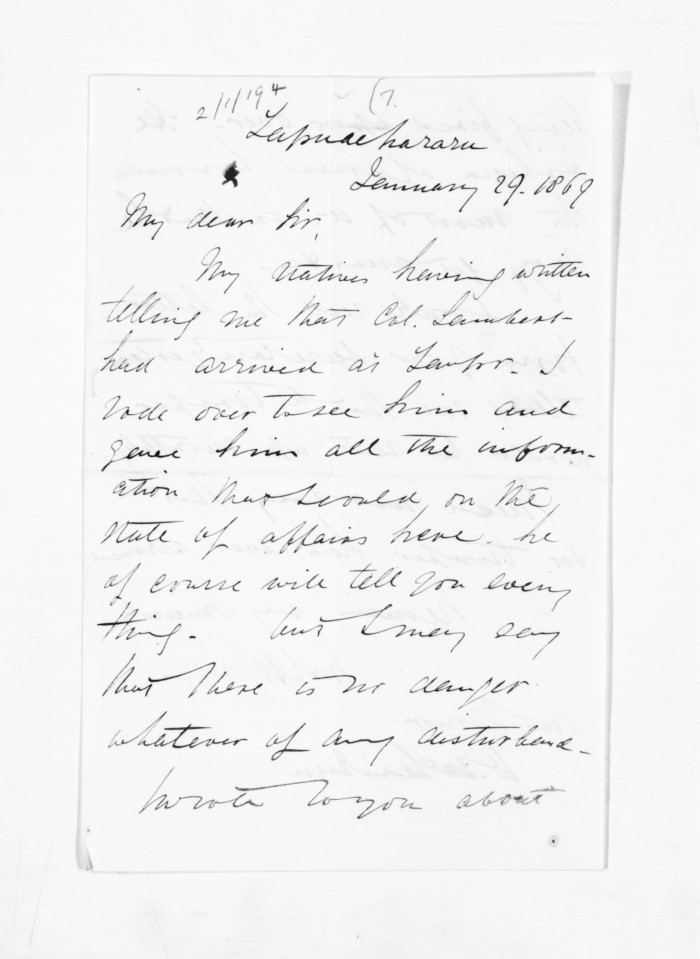 2/1/194 (7.
Tapuaeharuru
January 29. 1869
My dear Sir,
My natives having written
telling me that Col. Lambert
had arrived at Taupo. I
rode over to see him and
gave him all the inform-
ation that I could on the
state of affairs here. he
of course will tell you every
thing. but I may say
that there is no danger
whatever of any disturband-
I wrote to you about